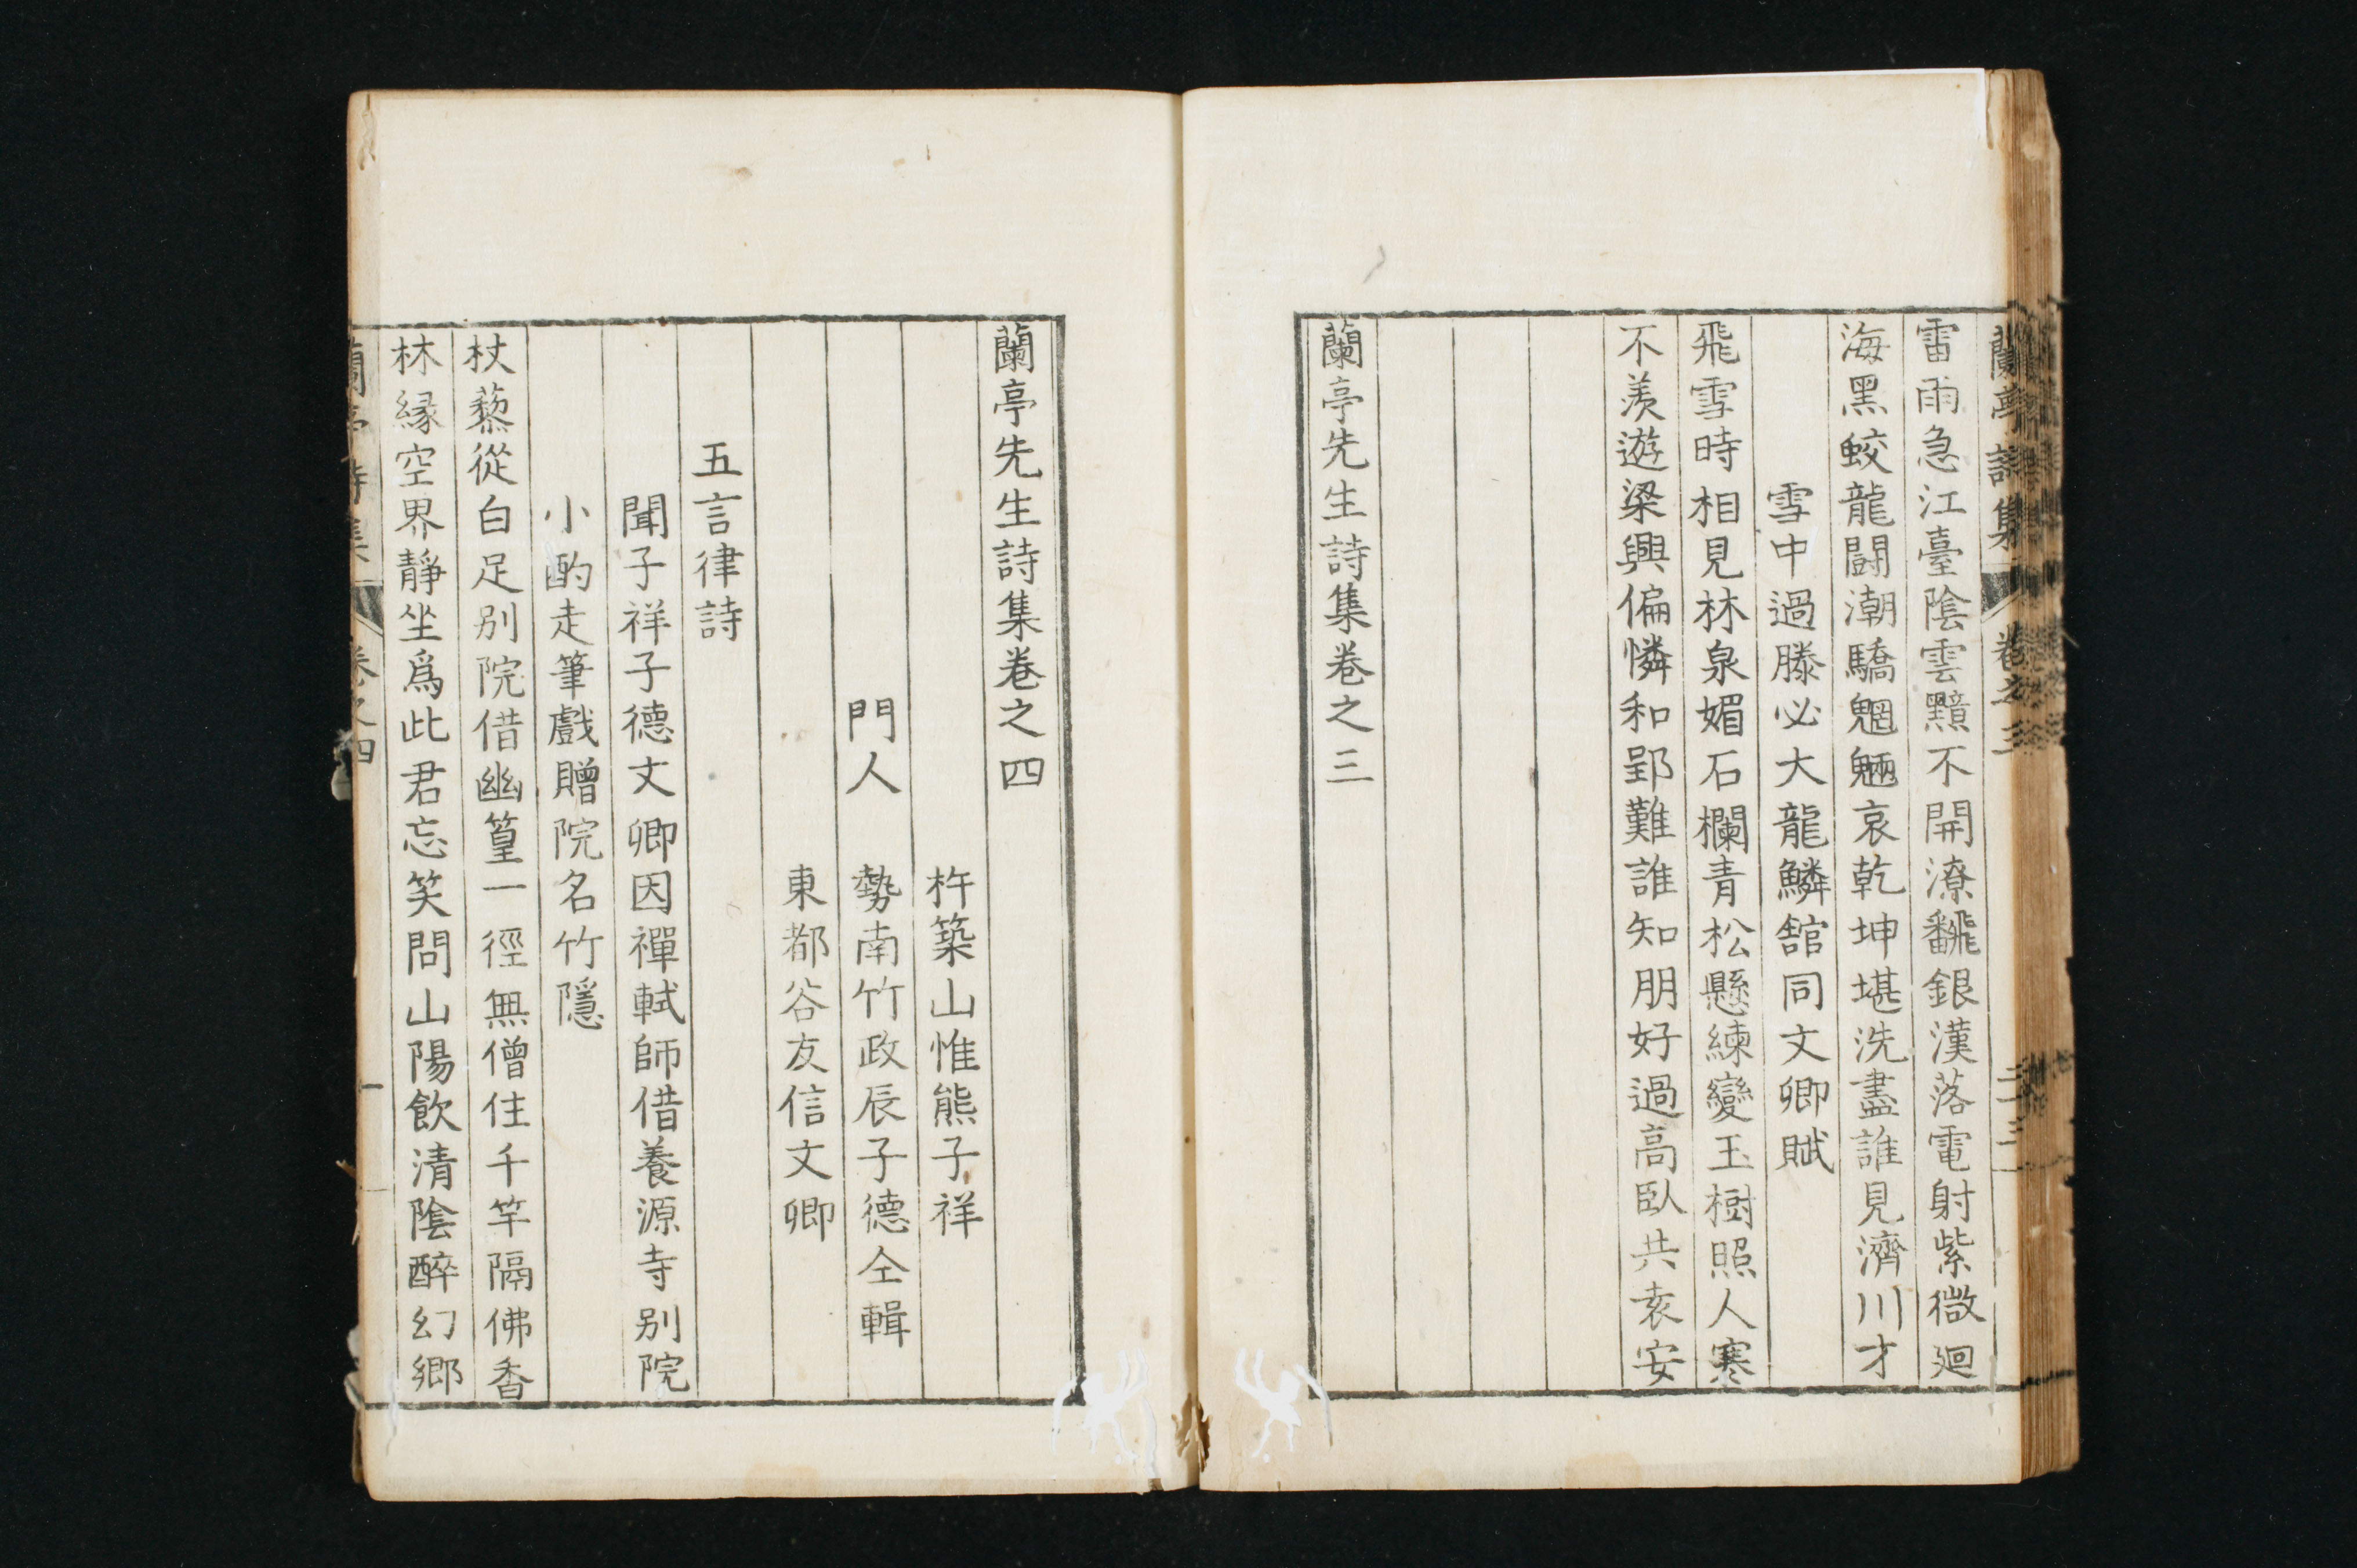 蘭亭詩集 卷之三 二三
雷雨急江臺陰雲黯不開潦飜銀漢落電射紫微迴
海黑蛟龍鬪潮驕魍魎哀乾坤堪洗盡誰見濟川才
雪中過滕必大龍鱗館同文卿賦
飛雪時相見林泉媚石欄青松懸練變玉樹照人寒
不羨遊梁興偏憐和郢難誰知朋好過高臥共袁安
蘭亭先生詩集卷之三
蘭亭先生詩集卷之四
杵築山惟熊子祥
門人 勢南竹政辰子德仝輯
東都谷友信文卿
五言律詩
聞子祥子德文卿因禪軾師借養源寺別院
小酌走筆戲贈院名竹隱
杖藜從白足別院借幽篁一徑無僧住千竿隔佛香
林緣空界靜坐爲此君忘笑問山陽飲清陰醉幻鄉
蘭亭詩集 卷之四 一